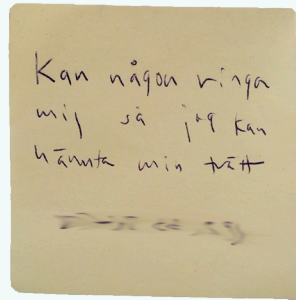 Kan någon ringa
mig så jag kan
hämta min tvätt